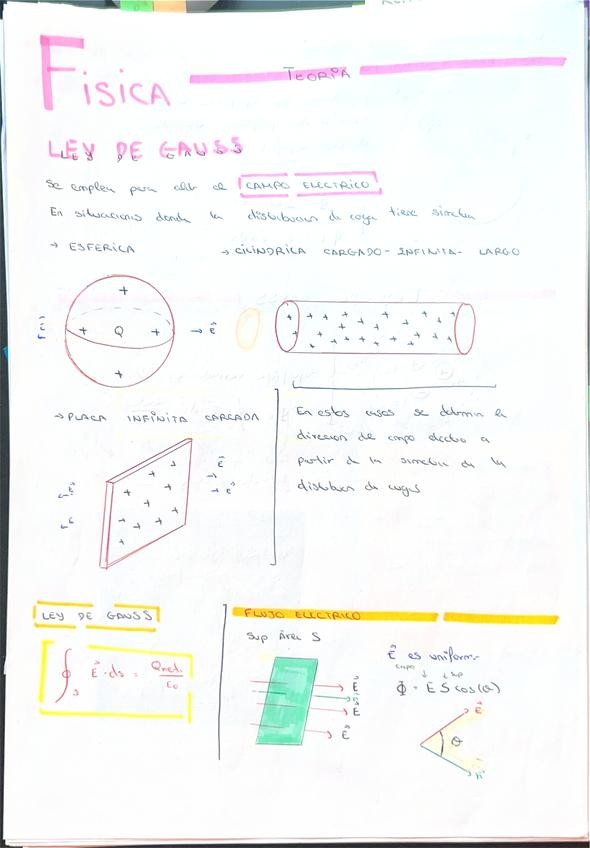 FISICA
TEORIA
LEY DE GAUSS
Se emplea para el CAMPO ELECTRICO
En situaciones donde la distribucion de carga tiene simetria
→ ESFERICA
→ CILINDRICA CARGADO - INFINITA - LARGO
+
+ Q +
+
→ E
→ PLACA INFINITA CARGADA
E
→ E
En estos casos se determin la
direccion del campo electrico a
partir de la simetria de la
distribucion de cargas
LEY DE GAUSS
∮s E · ds = Qnet / ε0
FLUJO ELECTRICO
Sup Área S
E
n
E
E
E es uniforme
campo sup
Φ = E S cos(θ)
E
θ
n